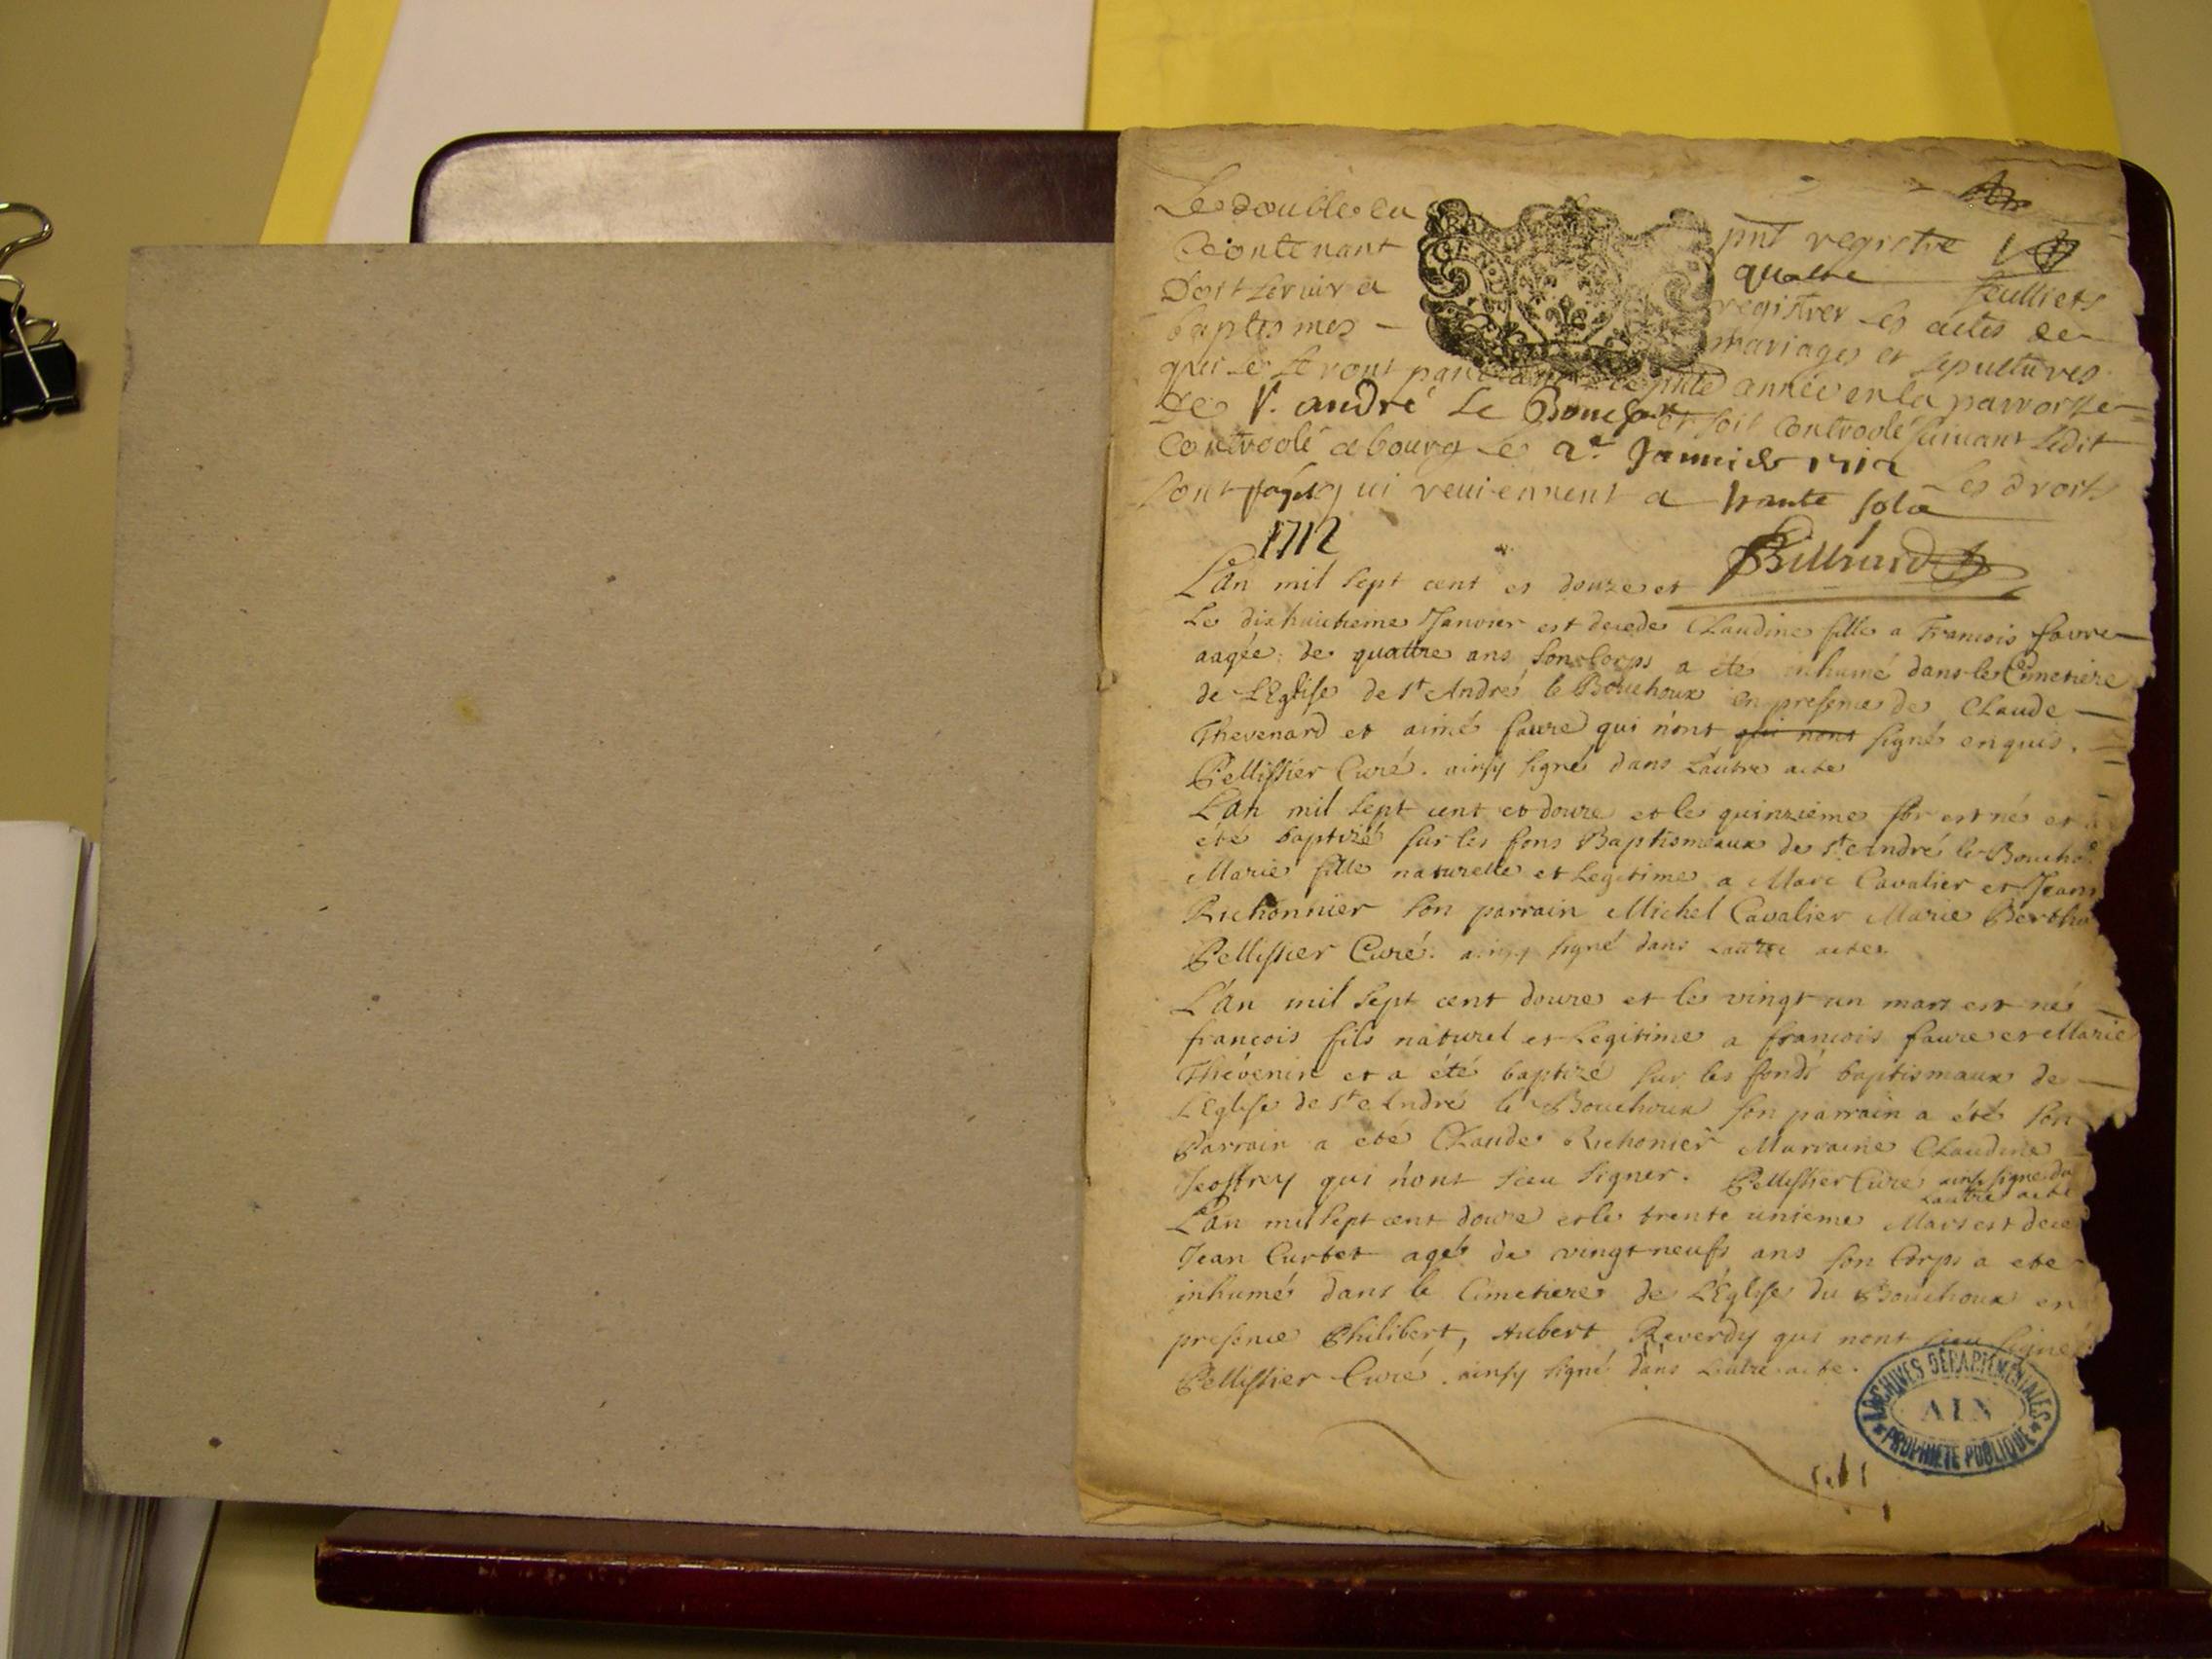 Le double du pnt registre
Contenant quatre feulliets
Doit servir a registrer les actes de
baptesmes - mariages et sepultures
qui se feront pandant la pnte année en la parroisse
de St. andré Le Bouchoux et soit controolé suivant ledit
Controolé a bourg le 2e. Janvier 1712 les droits
sont payes qui reviennent a trante sols
1712
L'an mil sept cent et douze et
Le dixhuictieme Janvier est decedé Claudine fille a Francois favre
aagée de quattre ans son corps a eté inhumé dans le Cimetiere
de L'Eglise de st André le Bouchoux en presence de Claude
Thevenard et aimé faure qui n'ont qui nont signé enquis.
Pellissier Curé. ainsy signé dans L'autre acte
L'an mil sept cent et douze et le quinzieme est né et a
été baptizé sur les fons Baptismaux de st André le Boucho
Marie fille naturelle et Legitime a Marc Cavalier et Jean
Richonnier son parrain Michel Cavalier Marie Bertho
Pellissier Curé. ainsy signé dans Lautre acte.
L'an mil sept cent douze et le vingt un mars est né
françois fils naturel et Legitime a françois faure et Marie
Thévenin et a été baptizé sur les fonds baptismaux de
L'Eglise de st André le Bouchoux son parrain a été son
Parrain a été Claude Richonier Marraine Claudine
Jeoffrey qui n'ont sceu signer. Pellissier Curé ainsy signé da
Lauttre acte
L'an mil sept cent douze et le trente unieme Mars est dece
Jean Curtet agé de vingt neufs ans son Corps a eté
inhumé dans le Cimetiere de L'Eglise du Bouchoux en
presence Philibert, Aubert Reverdy qui nont sceu signé
Pellissier Curé. ainsy signé dans L'autre acte.
ARCHIVES DÉPARTEMENTALES
AIN
PROPRIÉTÉ PUBLIQUE